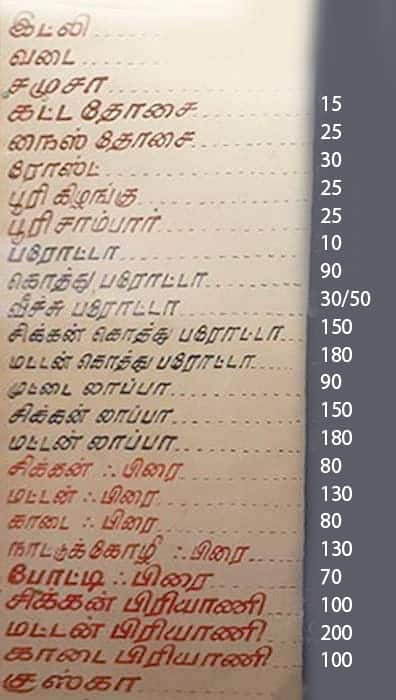 இட்லி
வடை
சமுசா
கட்ட தோசை 15
நைஸ் தோசை 25
ரோஸ்ட் 30
பூரி கிழங்கு 25
பூரி சாம்பார் 25
பரோட்டா 10
கொத்து பரோட்டா 90
வீச்சு பரோட்டா 30/50
சிக்கன் கொத்து பரோட்டா 150
மட்டன் கொத்து பரோட்டா 180
முட்டை லாப்பா 90
சிக்கன் லாப்பா 150
மட்டன் லாப்பா 180
சிக்கன் ஃபிரை 80
மட்டன் ஃபிரை 130
காடை ஃபிரை 80
நாட்டுக்கோழி ஃபிரை 130
போட்டி ஃபிரை 70
சிக்கன் பிரியாணி 100
மட்டன் பிரியாணி 200
காடை பிரியாணி 100
குஸ்கா